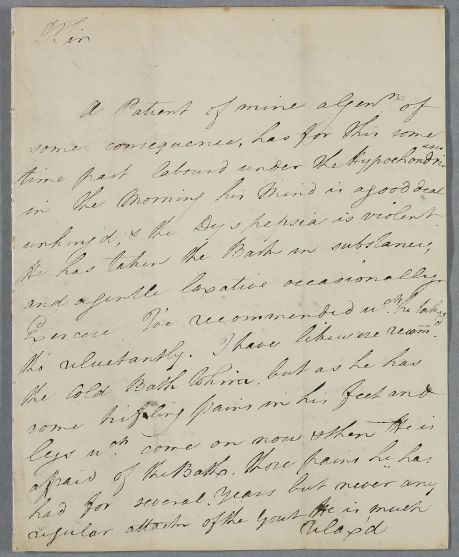 D Sir
A Patient of mine a Genn of
some consequence, has for this some
time past labourd under the Hypochondriasis
in the Morning his Mind is a good deal
unhing'd, & the Dyspepsia is violent
He has taken the Bark in substance,
and a gentle laxative occasionally
Exercise I've recommended wch he takes
tho' reluctantly. I have likewise recomd.
the Cold Bath to him. but as he has
some trifling pains in his feet and
legs wch come on now & then He is
afraid of the Bath. Those pains he has
had for several Years but never any
regular attack of the Gout He is much
relax'd